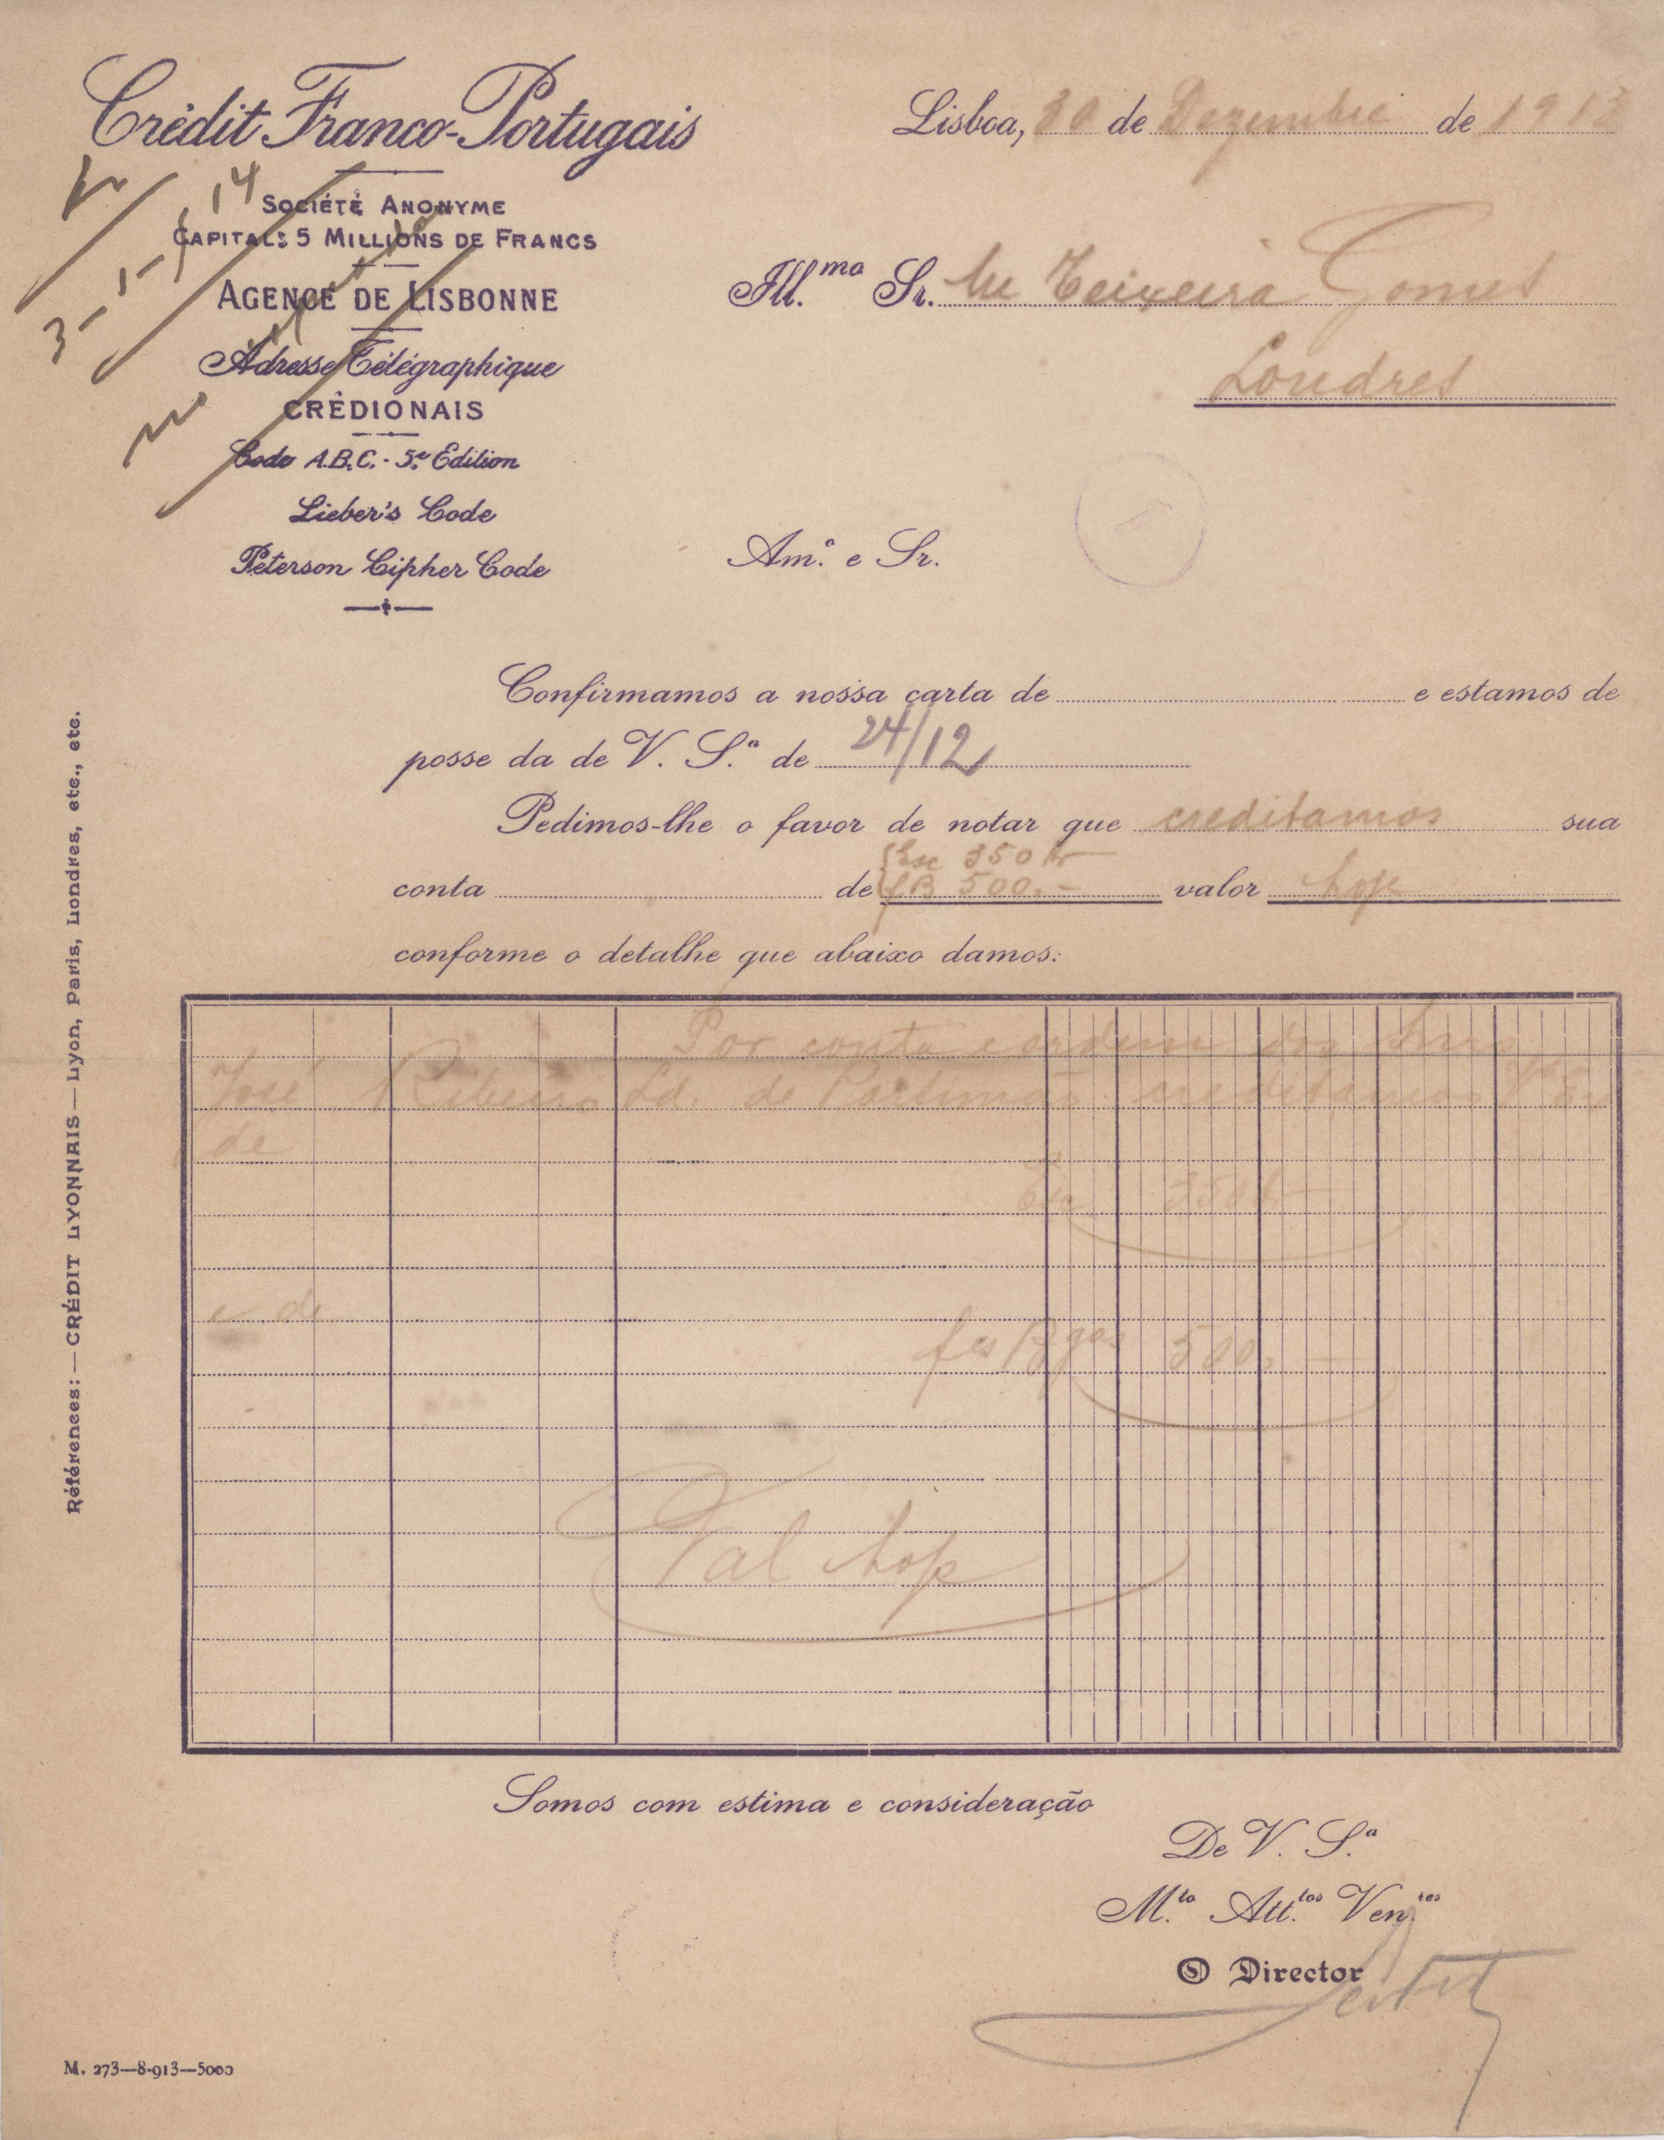 Crédit Franco-Portugais
Société Anonyme
Capital: 5 Millions de Francs
Agence de Lisbonne
Adresse Télégraphique
CRÉDIONAIS
Code A.B.C. - 5.e Edition
Lieber's Code
Peterson Cipher Code
3-1-14
Lisboa, 30 de Dezembro de 1913
Ill.mo Sr. M Teixeira Gomes
Londres
Am.o e Sr.
Confirmamos a nossa carta de e estamos de
posse da de V. S.a de 24/12
Pedimos-lhe o favor de notar que creditamos sua
Esc 350
conta de fB 500.- valor hoje
conforme o detalhe que abaixo damos:
Por conta e ordem dos Snrs
José Ribeiro Ld. de Portimão creditamos
de
Esc. 350
e de
fcs Bgas 500.-
Val hoje
Somos com estima e consideração
De V. S.a
M.to Att.tos Ven.res
O Director
Références: — CRÉDIT LYONNAIS — Lyon, Paris, Londres, etc., etc.
M. 273—8-913—5000